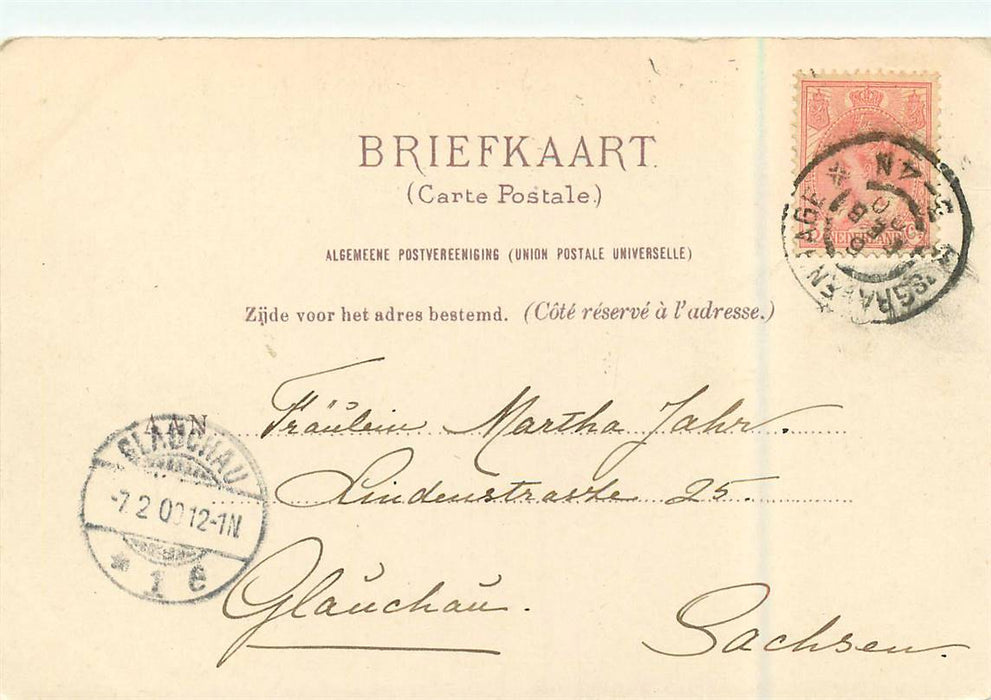 BRIEFKAART.
(Carte Postale.)
ALGEMEENE POSTVEREENIGING (UNION POSTALE UNIVERSELLE)
Zijde voor het adres bestemd. (Côté réservé à l'adresse.)
AAN
Fräulein Martha Jahr.
Lindenstrasse 25.
Glauchau.
Sachsen.
GLAUCHAU
-7.2 00 12-1N.
* 1 e
NEDERLAND
'SGRAVENHAGE
FEB